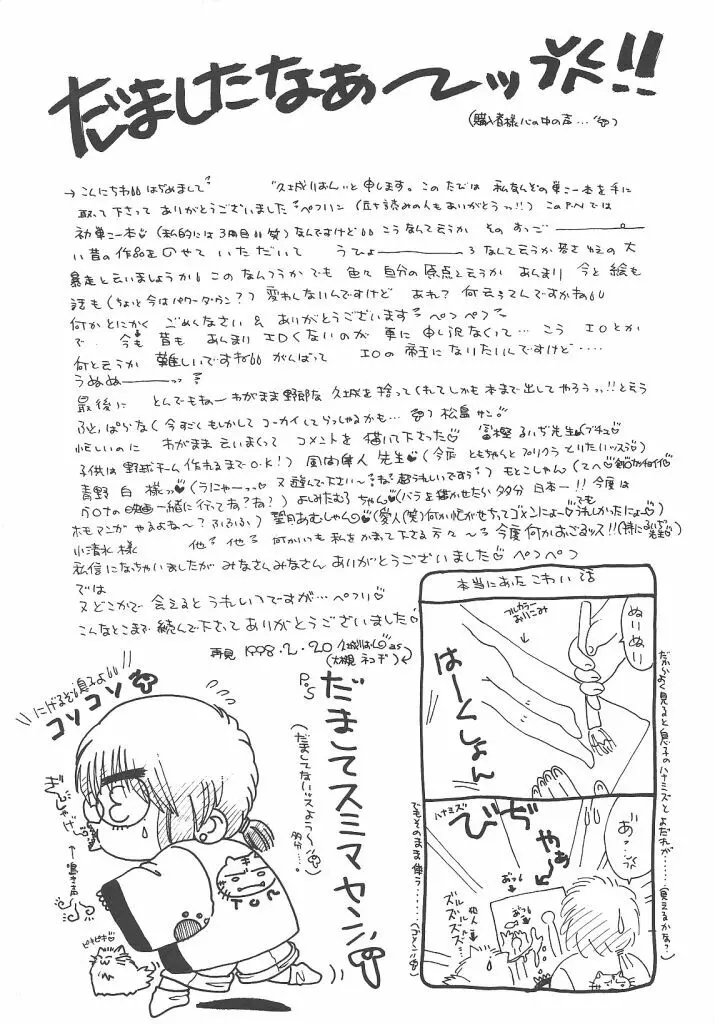 だましたなぁ〜〜ッ!!
(購入者様心の中の声…)
→こんにちわ はぢめまして "久城りおん"と申します。このたびは 私なんぞの単こー本を手に
取って下さって ありがとうございました ペプリン (立ち読みの人もありがとうっ!!) このP.Nでは
初単こー本 (私的には3冊目 笑) なんですけど こうなんて云うか そのすっご———
い昔の作品を のせて いただいて うひょ———ろ なんて云うか 若さゆえの大
暴走と云いましょうか このなんつうか でも 色々 自分の原点と云うか あんまり 今と絵も
話も (ちょっと今はパワーダウン?) 変わんないんですけど あれ? 何云ってんですかね
何かとにかく ごめんなさい & ありがとうございます ペプペプ
で 今も昔も あんまり エロくないのが 更に 申し訳なくって… こう エロとか
何と云うか 難しいですね がんばって エロの帝王になりたいんですけど‥‥
うぬぬ———っっ
最後に とんでもねーわがまま野郎な 久城を拾ってくれてしかも本まで出してやろうっ!!と云う
ふとっぱらなく今すごくもしかしてコーカイしてらっしゃるかも… 松島サン
忙しいのに わがまま云いまくって コメントを描いて下さった♡ 富樫るいぢ先生♡(ブチュ♡
子供は野球チーム作れるまでO.K!) 風間隼人先生♡(今度 ともちゃんとプリクラとりたいッスぅ)
青野 白 様っ♡(うにゃーっ♡ 又遊んで下さい〜ね 超うれしいですぅ) もとこしゃん(てへ♡
映画一緒に行ってね?ね?) よしみたむろちゃん♡(バラを描かせたら多分日本一!! 今度は
ホモマンガやるよね〜? ふふふ) 望月あむしゃん♡(愛人(笑)何か忙がせちってゴメンにょー♡でもうれしかったにょー♡)
小清水様 他 他 何かいつも私をかまって下さる方々〜 今度何かおごるッス!!
私信になっちゃいましたが みなさんみなさん ありがとうございました♡ ペプペプ
では
又どこかで 会えると うれしいっですが… ペプリ♡
こんなとこまで 読んで下さって ありがとうございました♡
再見 1998.2.20 久城りおん as
(大槻 ネコヂ)
P.S
だましてスミマセン
(だましてないッスよう〜 多分…。)
にげるぞ息子よ
コソコソ
ぎんじゃげー
←鳴き声
ピキピキ
本当にあった こわい話
フルカラー
おりこみ
ぬりぬり
はーくしょん
だからよく見ると息子のハナミズとよだれが……(見えるかな?)
ハナミズ
びぢゃあー
あ?…
おっ
おっ
犯人
ズルズルズル…
でもそのまま使う……(ゴメン)